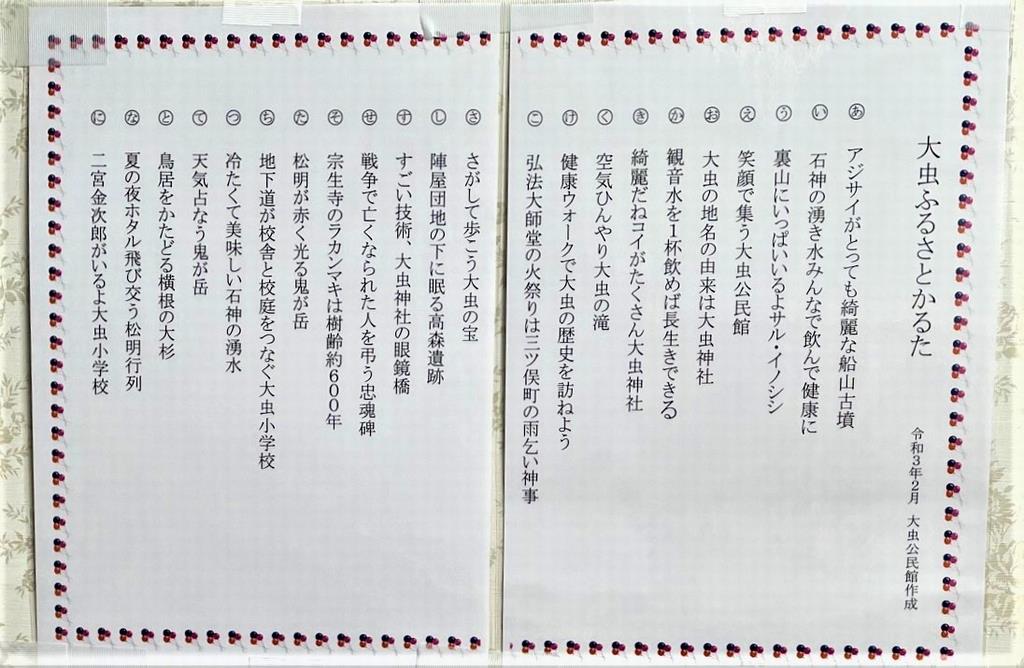 大虫ふるさとかるた
令和３年２月　大虫公民館作成
あ　アジサイがとっても綺麗な船山古墳
い　石神の湧き水みんなで飲んで健康に
う　裏山にいっぱいいるよサル・イノシシ
え　笑顔で集う大虫公民館
お　大虫の地名の由来は大虫神社
か　観音水を１杯飲めば長生きできる
き　綺麗だねコイがたくさん大虫神社
く　空気ひんやり大虫の滝
け　健康ウォークで大虫の歴史を訪ねよう
こ　弘法大師堂の火祭りは三ツ俣町の雨乞い神事
さ　さがして歩こう大虫の宝
し　陣屋団地の下に眠る高森遺跡
す　すごい技術、大虫神社の眼鏡橋
せ　戦争で亡くなられた人を弔う忠魂碑
そ　宗生寺のラカンマキは樹齢約６００年
た　松明が赤く光る鬼が岳
ち　地下道が校舎と校庭をつなぐ大虫小学校
つ　冷たくて美味しい石神の湧水
て　天気占なう鬼が岳
と　鳥居をかたどる横根の大杉
な　夏の夜ホタル飛び交う松明行列
に　二宮金次郎がいるよ大虫小学校